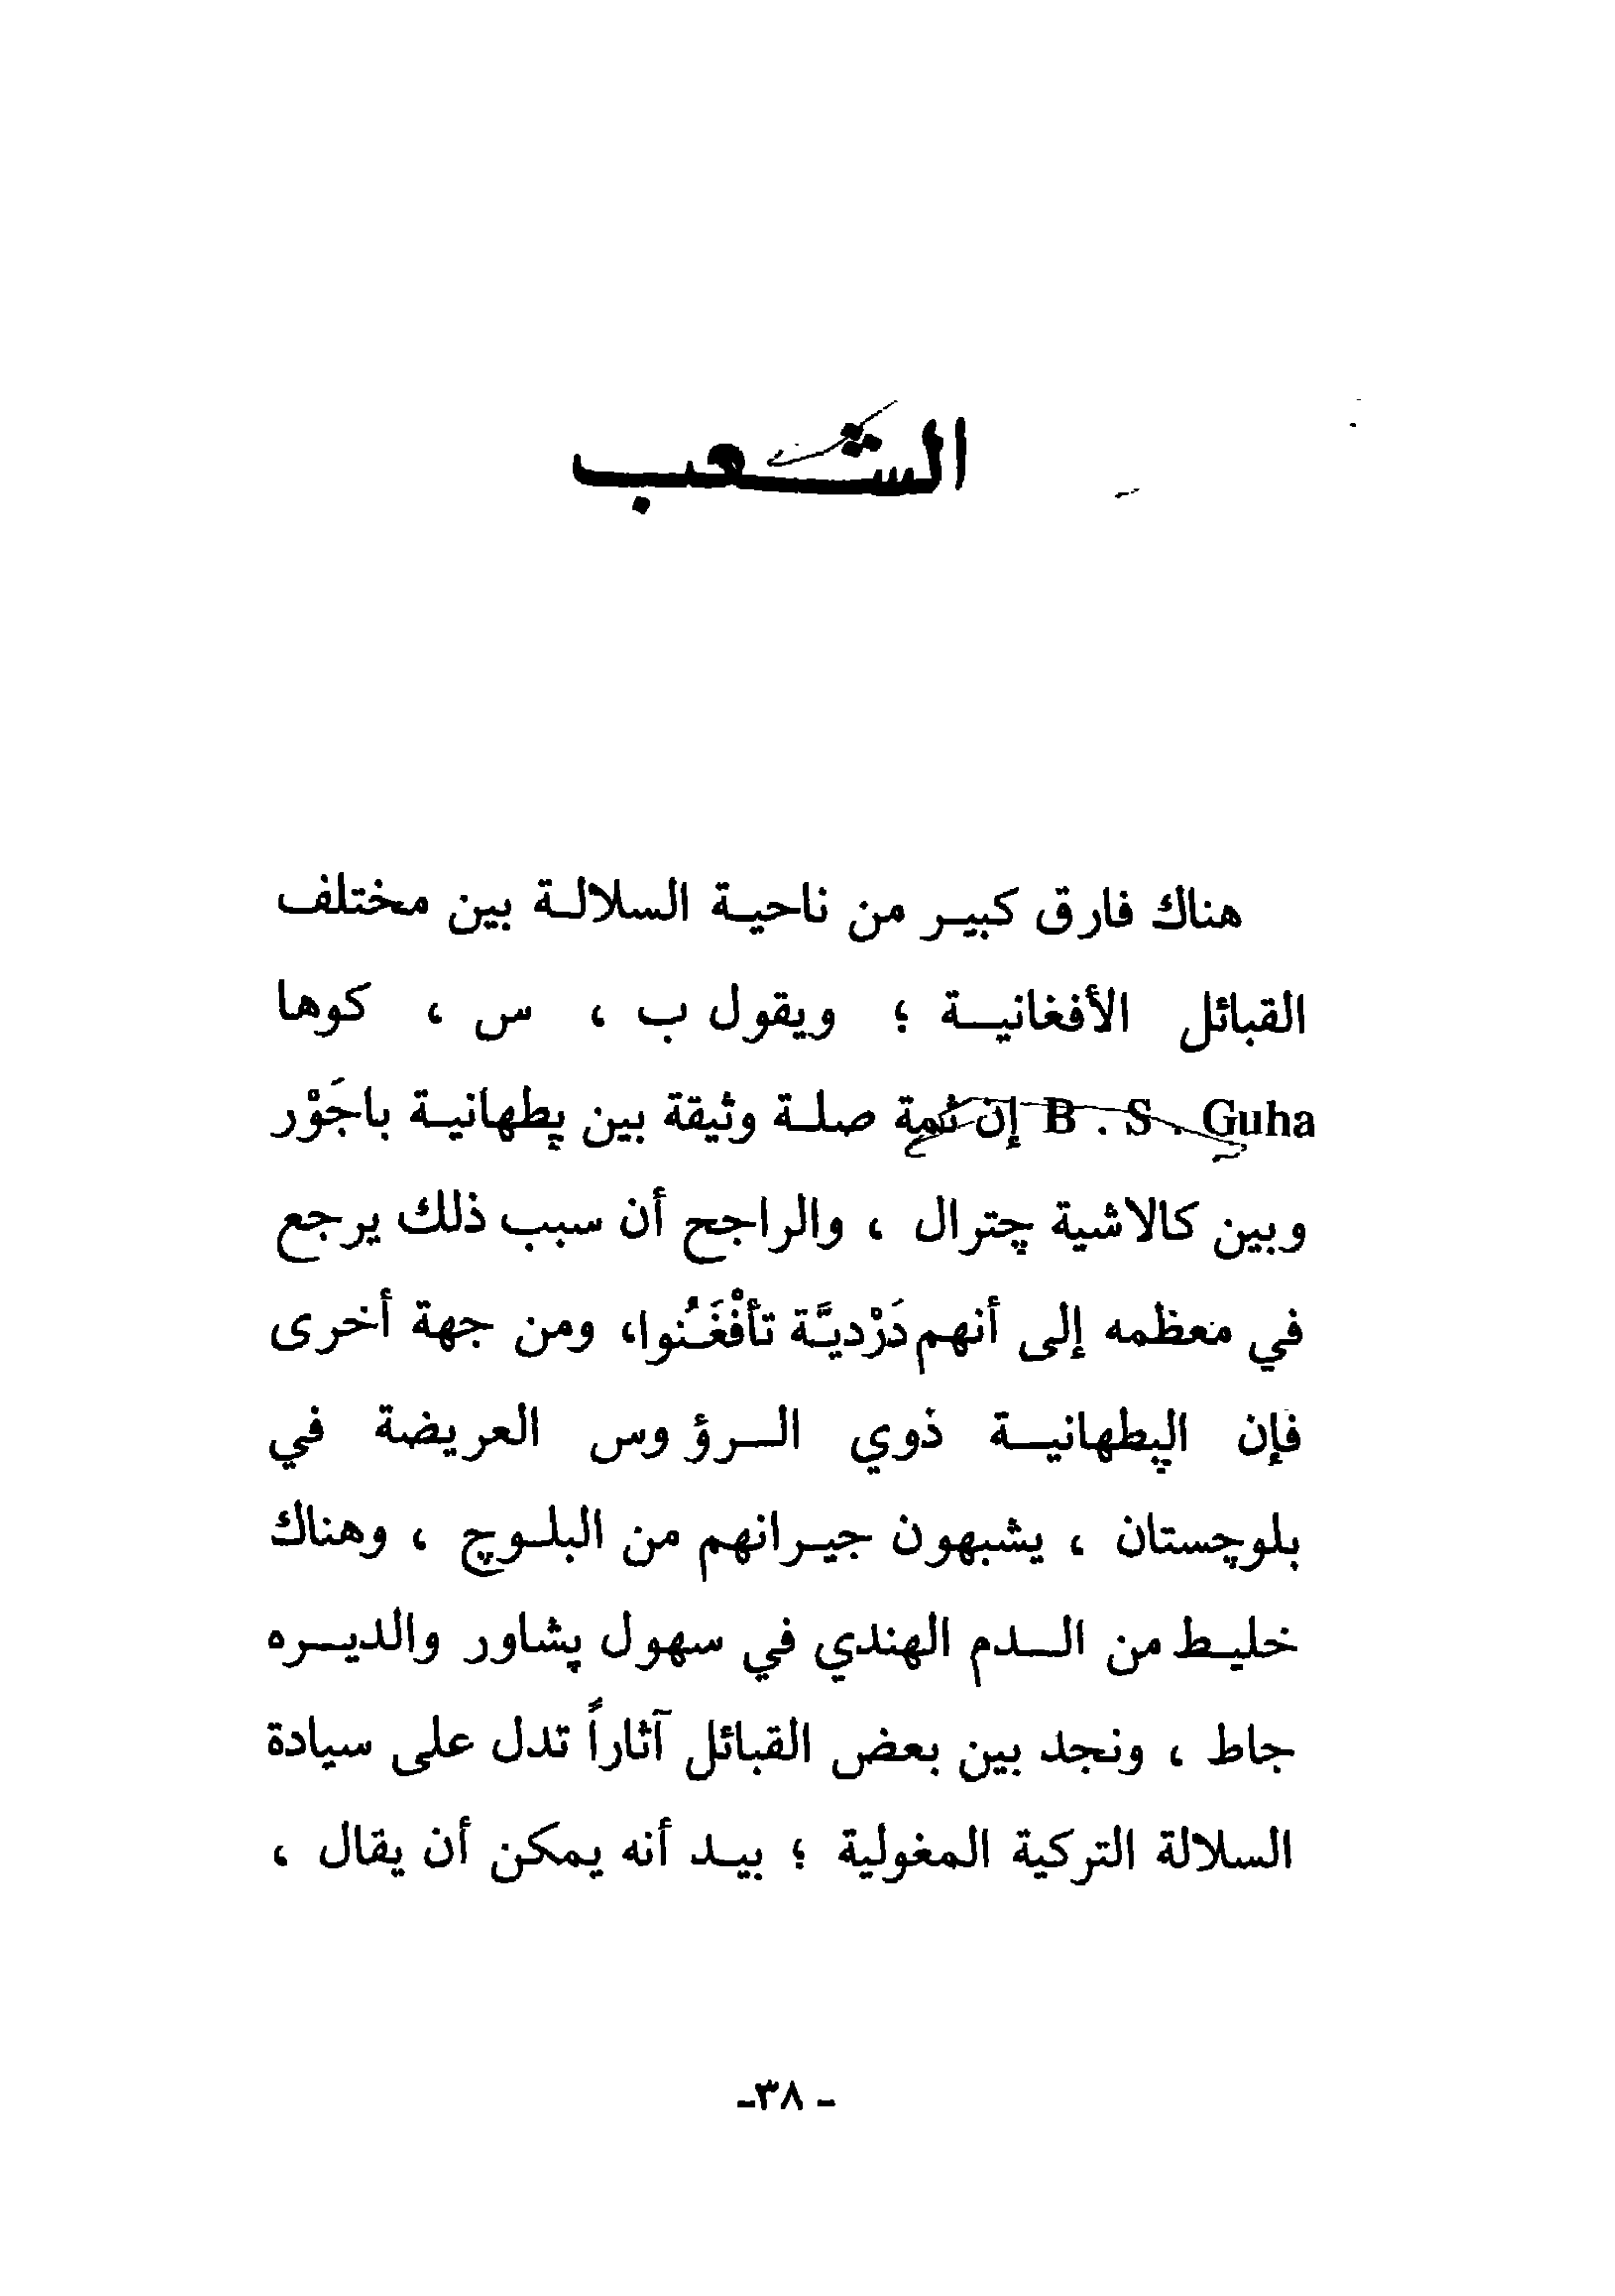 الشعب
هناك فارق كبير من ناحية السلالة بين مختلف
القبائل الأفغانية ؛ ويقول ب ، س ، كوها
B . S . Guha إن ثمة صلة وثيقة بين پطهانية باجَوْر
وبين كالاشية چترال ، والراجح أن سبب ذلك يرجع
في معظمه إلى أنهم دَرْديَّة تأفْغَنُوا، ومن جهة أخرى
فإن الپطهانية ذوي الرؤوس العريضة في
بلوچستان ، يشبهون جيرانهم من البلوچ ، وهناك
خليط من الدم الهندي في سهول پشاور والديره
جاط ، ونجد بين بعض القبائل آثاراً تدل على سيادة
السلالة التركية المغولية ؛ بيد أنه يمكن أن يقال ،
- ٣٨ -